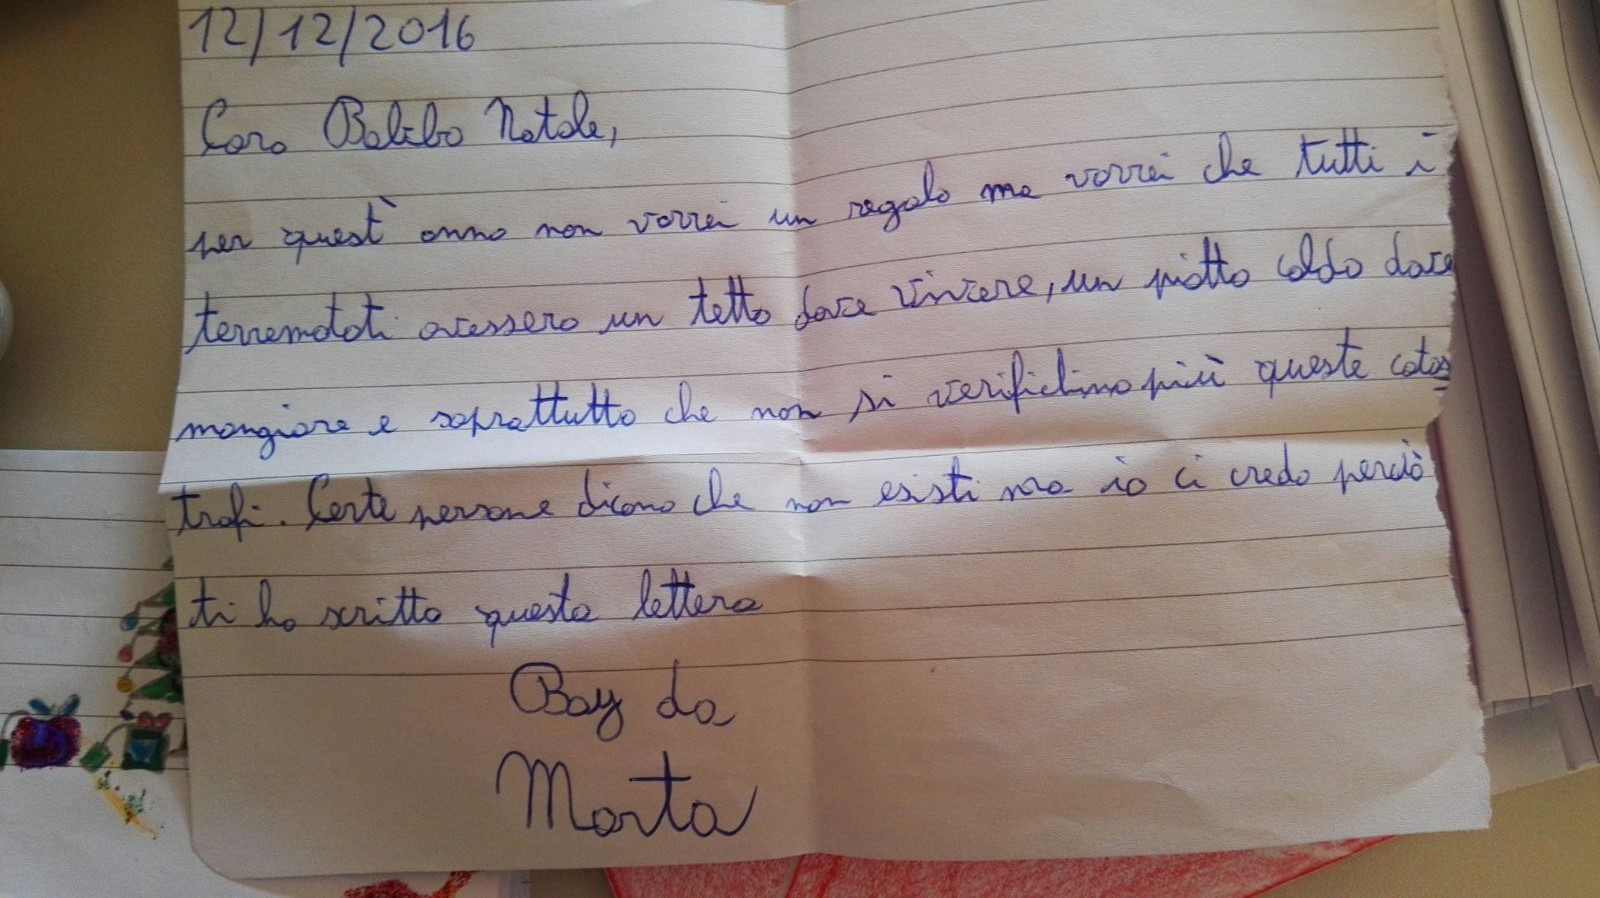 12/12/2016
Caro Babbo Natale,
per quest' anno non vorrei un regalo ma vorrei che tutti i
terremotati avessero un tetto dove vivere, un piatto caldo dove
mangiare e soprattutto che non si verifichino più queste catas
trofi. Certe persone dicono che non esisti ma io ci credo perciò
ti ho scritto questa lettera
Bay da
Marta